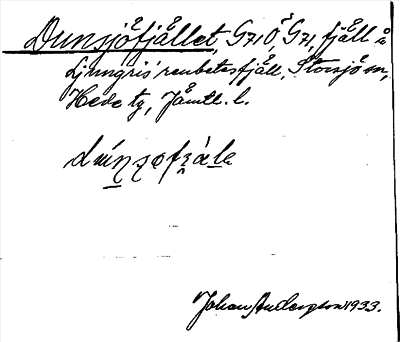 Dunsjöfjället, G71Ö, G71, fjäll å
Ljungris' renbetesfjäll, Storsjö sn,
Hede tg, Jämtl. l.
Johan Anderson 1933.